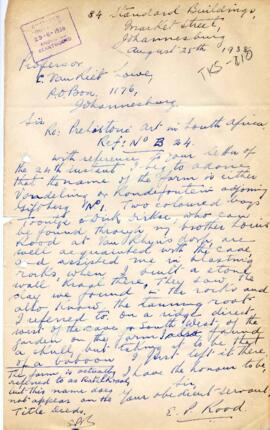 84 Standard Buildings,
Market Street,
Johannesburg
August 25th 1938
TKS-818
Professor
C. Van Riet Lowe,
P.O Box. 1576,
Johannesburg.
Sir
Re: Prehistoric Art in South Africa
Ref: No B 24.
With reference to your letter of
the 24th instant, I beg to advise
that the name of the farm is either
or Rondefontein adjoining
No 1. Two coloured boys
& Dirkse, who can
be found through my brother Louis
Rood at Van Rhyns dorp, are
well acquainted with the cave
and assisted me in blasting
rocks, when I built a stone
wall kraal there, they saw the
day we found in the rocks and
also know the tanning root
I referred to. On a ridge direct
west of the cave & South West of the
garden on the farm I also found
a skull but taking it to be that
of a baboon I just left it there.
The farm is actually
referred to as
but this name does
not appear on the
Title Deeds.
I have the honour to be
Sir
Your obedient servant,
E. P. Rood.